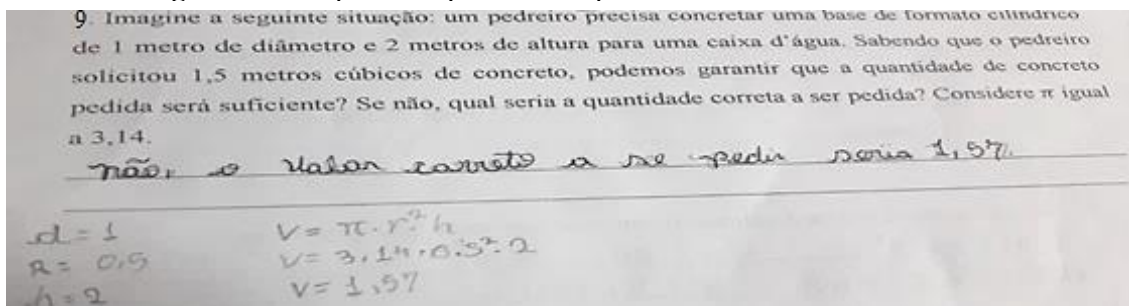 9. Imagine a seguinte situação: um pedreiro precisa concretar uma base de formato cilíndrico
de 1 metro de diâmetro e 2 metros de altura para uma caixa d'água. Sabendo que o pedreiro
solicitou 1,5 metros cúbicos de concreto, podemos garantir que a quantidade de concreto
pedida será suficiente? Se não, qual seria a quantidade correta a ser pedida? Considere π igual
a 3,14.
não, o valor correto a se pedir seria 1,57.
d = 1
R = 0,5
h = 2
V = π.r².h
V = 3,14.0,5².2
V = 1,57